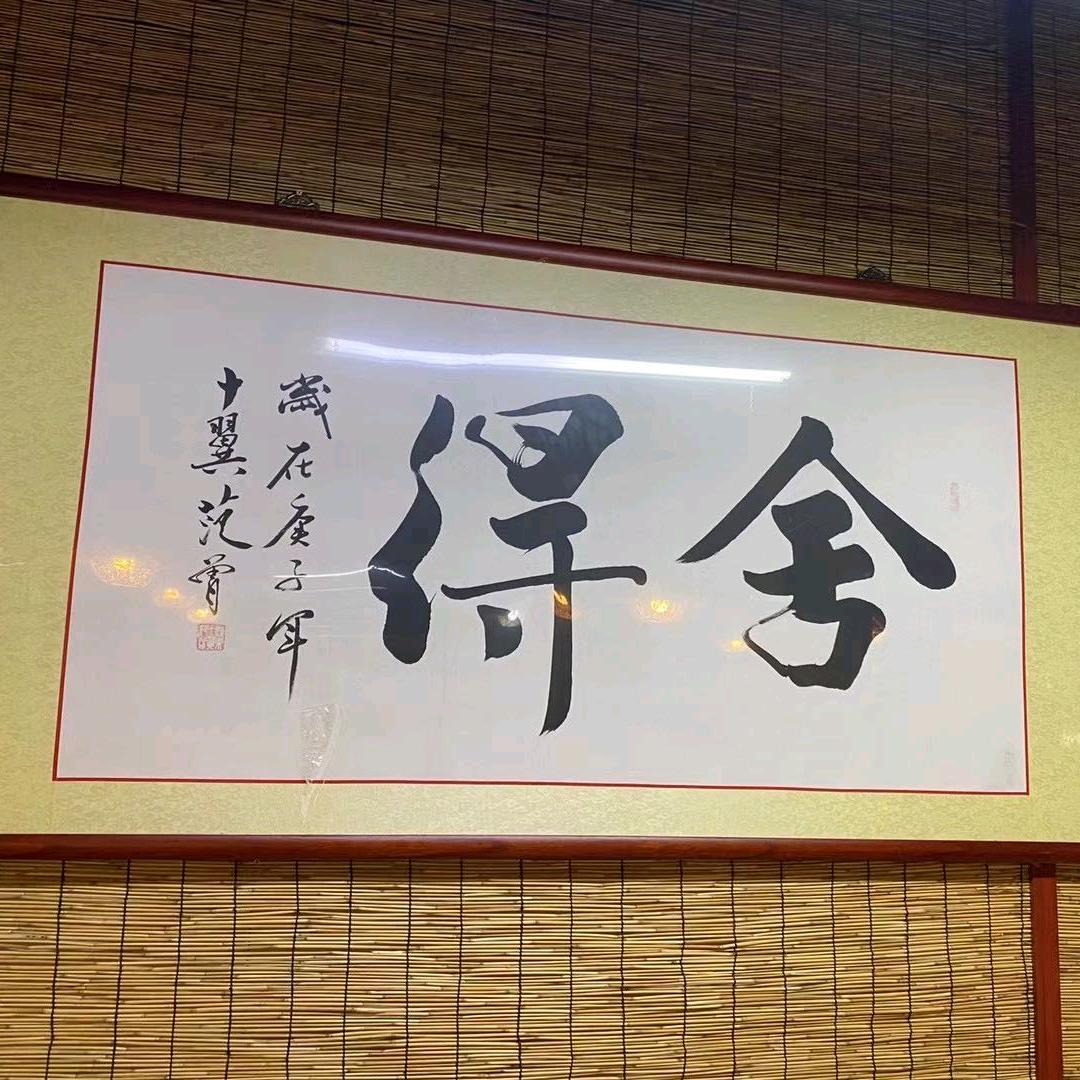 舍得
歲在庚子年
十翼范曾